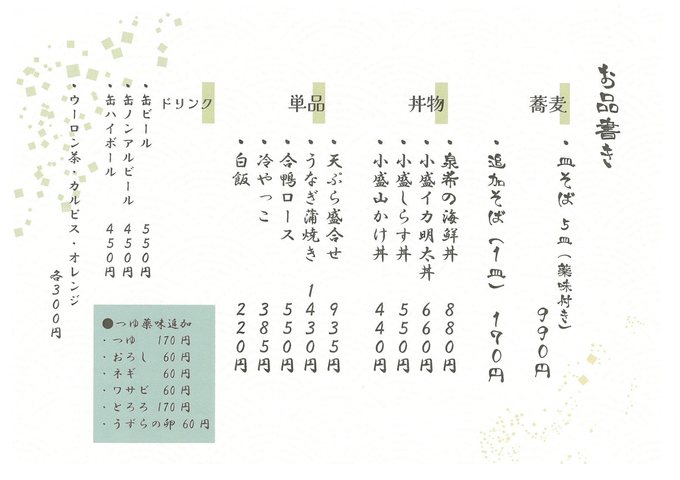 お品書き
蕎麦
・皿そば 5皿(薬味付き)
990円
・追加そば(1皿) 170円
丼物
・泉希の海鮮丼 880円
・小盛イカ明太丼 660円
・小盛しらす丼 550円
・小盛山かけ丼 440円
単品
・天ぷら盛合せ 935円
・うなぎ蒲焼き 1430円
・合鴨ロース 550円
・冷やっこ 385円
・白飯 220円
ドリンク
・缶ビール 550円
・缶ノンアルビール 450円
・缶ハイボール 450円
・ウーロン茶・カルピス・オレンジ
各300円
●つゆ薬味追加
・つゆ 170円
・おろし 60円
・ネギ 60円
・ワサビ 60円
・とろろ 170円
・うずらの卵 60円